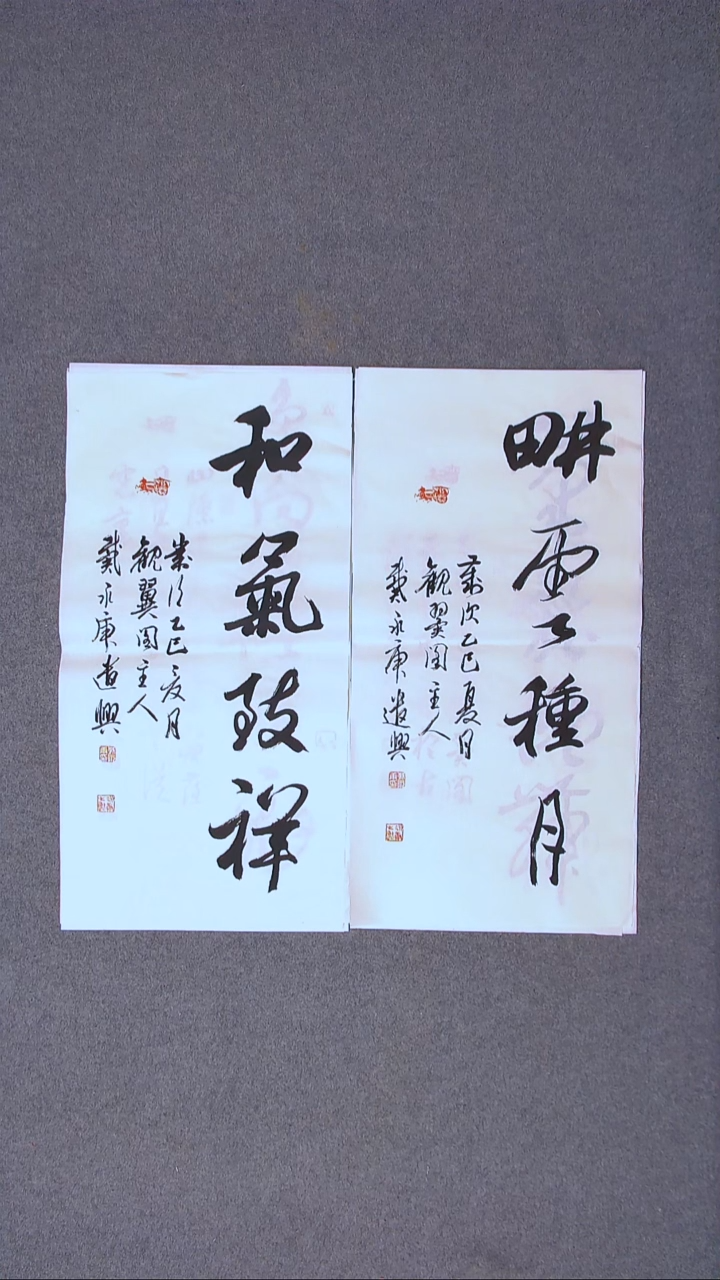 畊雲種月
歲次乙巳夏月
觀翼閣主人
戴永康遣興
和氣致祥
歲次乙巳夏月
觀翼閣主人
戴永康遣興